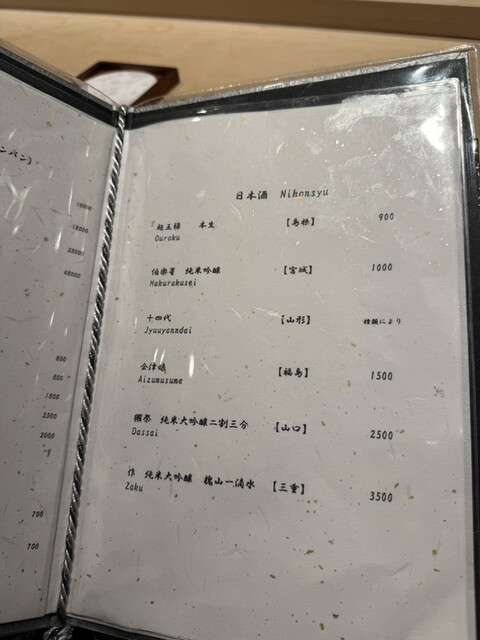 ンパン)
18000
38000
48000
800
800
1800
2500
2000
700
700
日本酒 Nihonsyu
超王祿 本生 【島根】 900
Ouroku
伯楽星 純米吟醸 【宮城】 1000
Hakurakusei
十四代 【山形】 種類により
Jyuuyonndai
会津娘 【福島】 1500
Aizumusume
獺祭 純米大吟醸二割三分 【山口】 2500
Dassai
作 純米大吟醸 槐山一滴水 【三重】 3500
Zaku